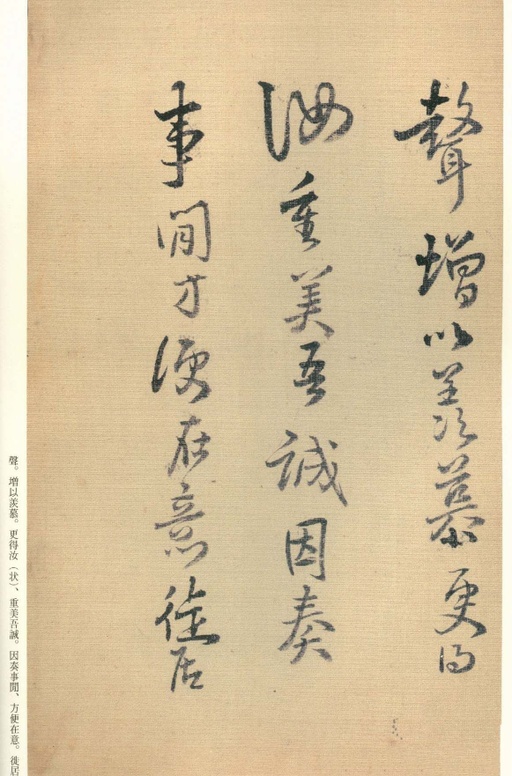 聲增以羨慕更得
汝重美吾誠因奏
事閒方便在意徙居
聲。增以羨墓。更得汝（状）、重美吾誠。因奏事閒、方便在意。徙居